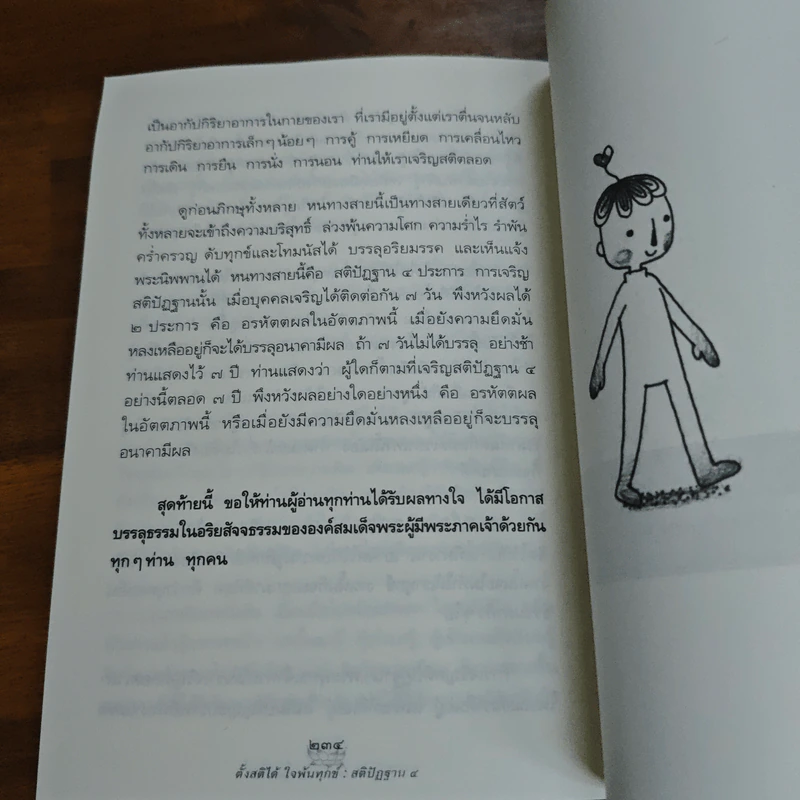 เป็นอากัปกิริยาอาการในกายของเรา ที่เรามีอยู่ตั้งแต่เราตื่นจนหลับ
อากัปกิริยาอาการเล็กๆ น้อยๆ การคู้ การเหยียด การเคลื่อนไหว
การเดิน การยืน การนั่ง การนอน ท่านให้เราเจริญสติตลอด
ดูก่อนภิกษุทั้งหลาย หนทางสายนี้เป็นทางสายเดียวที่สัตว์
ทั้งหลายจะเข้าถึงความบริสุทธิ์ ล่วงพ้นความโศก ความร่ำไร รำพัน
คร่ำครวญ ดับทุกข์และโทมนัสได้ บรรลุอริยมรรค และเห็นแจ้ง
พระนิพพานได้ หนทางสายนี้คือ สติปัฏฐาน ๔ ประการ การเจริญ
สติปัฏฐานนั้น เมื่อบุคคลเจริญได้ติดต่อกัน ๗ วัน พึงหวังผลได้
๒ ประการ คือ อรหัตตผลในอัตตภาพนี้ เมื่อยังความยึดมั่น
หลงเหลืออยู่ก็จะได้บรรลุอนาคามีผล ถ้า ๗ วันไม่ได้บรรลุ อย่างช้า
ท่านแสดงไว้ ๗ ปี ท่านแสดงว่า ผู้ใดก็ตามที่เจริญสติปัฏฐาน ๔
อย่างนี้ตลอด ๗ ปี พึงหวังผลอย่างใดอย่างหนึ่ง คือ อรหัตตผล
ในอัตตภาพนี้ หรือเมื่อยังมีความยึดมั่นหลงเหลืออยู่ก็จะบรรลุ
อนาคามีผล
สุดท้ายนี้ ขอให้ท่านผู้อ่านทุกท่านได้รับผลทางใจ ได้มีโอกาส
บรรลุธรรมในอริยสัจจธรรมขององค์สมเด็จพระผู้มีพระภาคเจ้าด้วยกัน
ทุกๆ ท่าน ทุกคน
๒๓๔
ตั้งสติได้ ใจพ้นทุกข์ : สติปัฏฐาน ๔